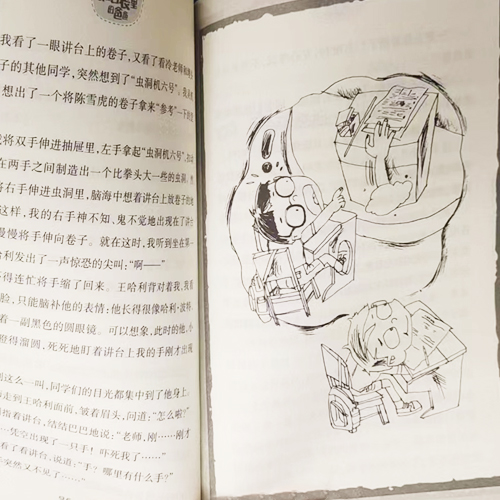 我看了一眼讲台上的卷子，又看了看冷老师和
子的其他同学，突然想到了“虫洞机六号”。
想出了一个将陈雪虎的卷子拿来“参考”一下的
我将双手伸进抽屉里，左手拿起“虫洞机六号”，
在两手之间制造出一个比拳头大一些的虫洞，
将右手伸进虫洞里，脑海中想着讲台上放卷子的
这样，我的右手神不知、鬼不觉地出现在了讲
慢慢将手伸向卷子。就在这时，我听到坐在第一
哈利发出了一声惊恐的尖叫：“啊——”
不得连忙将手缩了回来。王哈利背对着我，我
脸，只能脑补他的表情：他长得很像哈利·波特，
着一副黑色的圆眼镜。可以想象，此时的他，小
瞪得溜圆，死死地盯着讲台上我的手刚才出现
到这么一叫，同学们的目光都集中到了他身上。
走到王哈利面前，皱着眉头，问道：“怎么啦？”
指着讲台，结结巴巴地说：“老师，刚……刚才
凭空出现了一只手！吓死我了……”
看了看讲台，说道：“手？哪里有什么手？”
突然又不见了……”